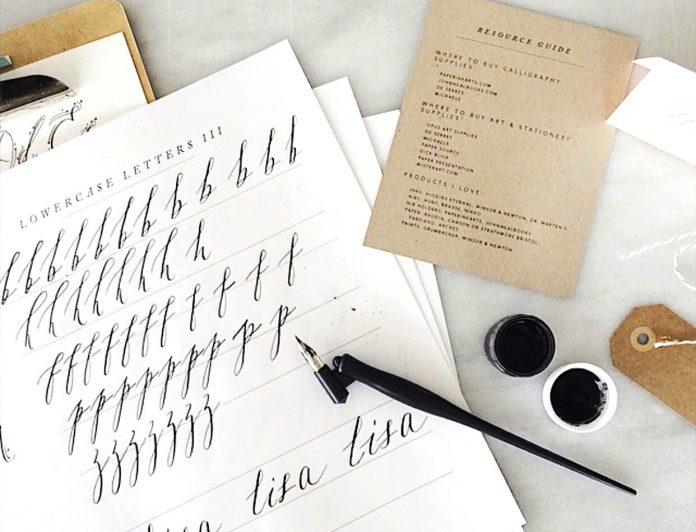 LOWERCASE LETTERS III
b b b b b b b b b b b b
h h h h h h h h
f f f f f f f f f f f
p p p p p p p p p
z z z z z z z
lisa lisa
RESOURCE GUIDE
WHERE TO BUY CALLIGRAPHY
SUPPLIES:
PAPERINKARTS.COM
JOHNNEALBOOKS.COM
DE SERRES
MICHAELS
WHERE TO BUY ART & STATIONERY
SUPPLIES:
OPUS ART SUPPLIES
DE SERRES
MICHAELS
PAPER SOURCE
DICK BLICK
PAPER PRESENTATION
MISTERART.COM
PRODUCTS I LOVE:
INKS: HIGGINS ETERNAL, WINSOR & NEWTON, DR. MARTEN'S
NIBS: HUNT, BRAUSE, NIKKO
NIB HOLDERS: PAPERINKARTS, JOHNNEALBOOKS
PAPER: RHODIA, CANSON OR STRATHMORE BRISTOL,
SABLAND, ARCHES
PAINTS: GRUMBACHER, WINSOR & NEWTON